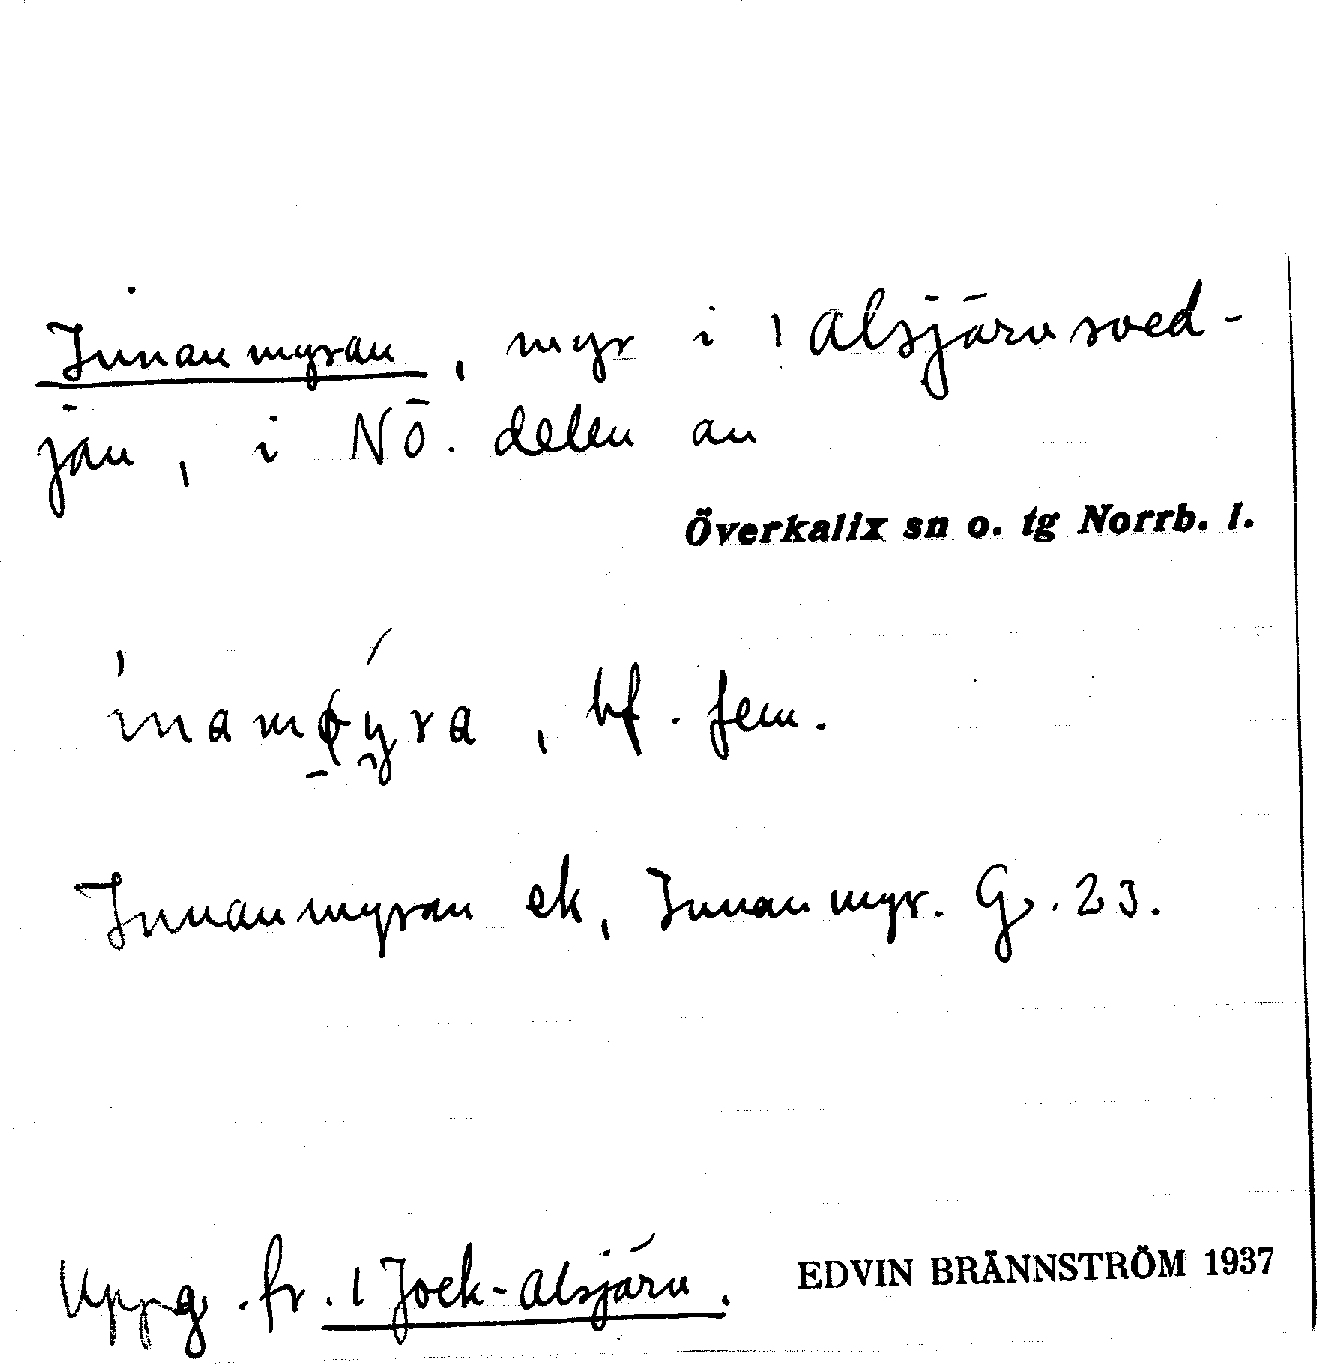 Innanmyran, myr i 1 Alsjärvsved-
jan, i NÖ. delen av
Överkalix sn o. tg Norrb. l.
inamøyra, bf. fem.
Innanmyran ek, Innanmyr. G. 23.
Uppg. fr. 1 Jock-Alsjärv.
EDVIN BRÄNNSTRÖM 1937